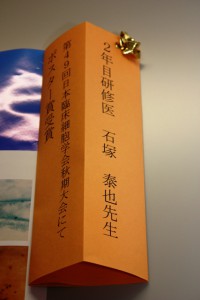 2年目研修医 石塚 泰也先生
第49回日本臨床細胞学会秋期大会にて
ポスター賞受賞